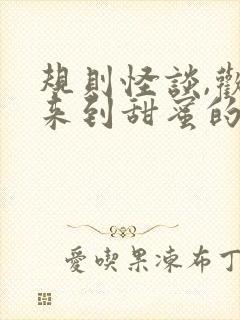 規則怪談,歡
來到甜蜜的
愛喫果凍布丁